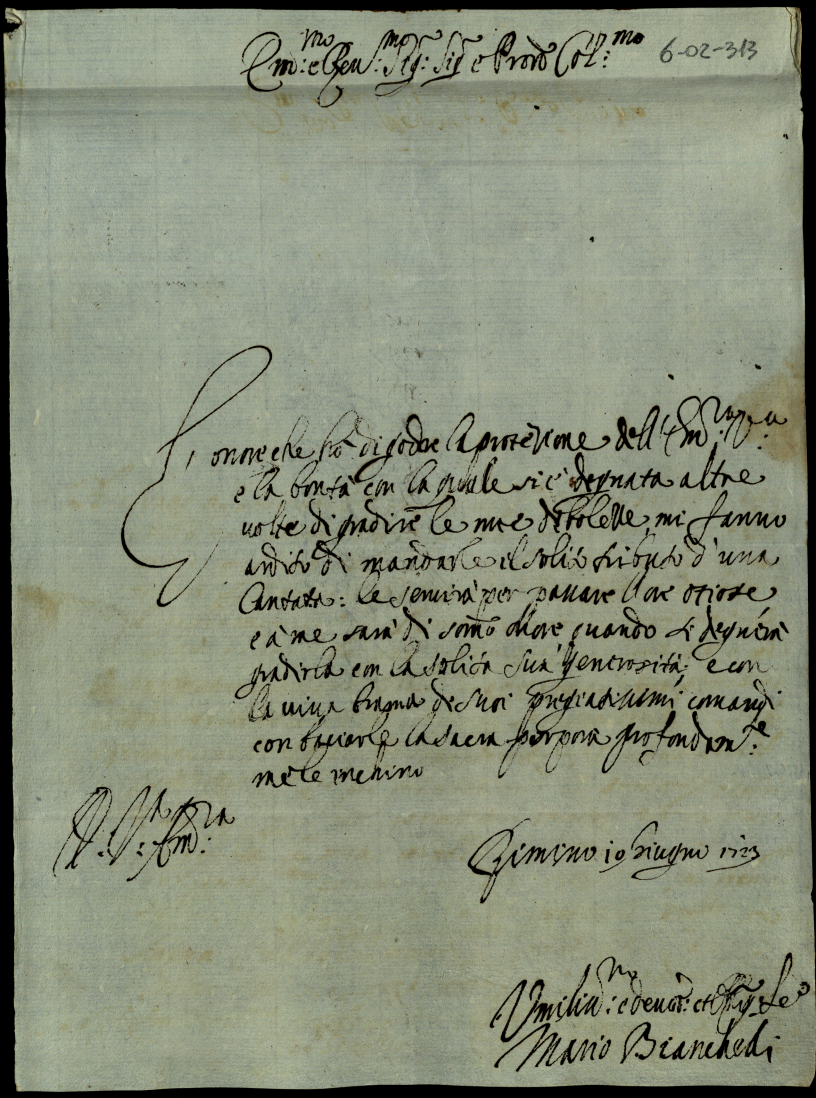 Em:mo e Reu:mo Sig: Sig e Prone Col:mo 6-02-313
L'onore che hò di godere la protezione dell'Em:za V:a
e la bontà con la quale si è degnata altre
volte di gradire le mie debolezze, mi fanno
ardito di mandarle il solito tributo d'una
Cantata: le servirà per passare l'ore otiose
e à me sarà di somo onore quando si degnerà
gradirla con la solita sua generosità; e con
la viva brama de suoi pregiatissimi comandi
con baciarle la sacra porpora profondam:te
me le inchino
D. V:a Em:za
Rimino 10 Giugno 1723
Umiliss:mo e deuot: et Oblig Se
Mario Bianchelli